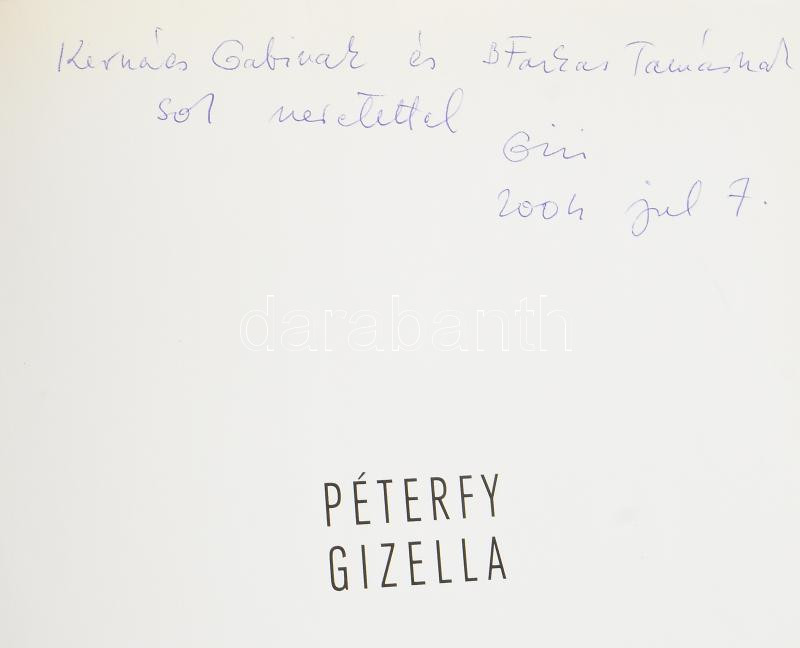 Kernács Gabinak és B Farkas Tamásnak
sok szeretettel
Gizi
2004 jul 7.
darabanth
PÉTERFY
GIZELLA